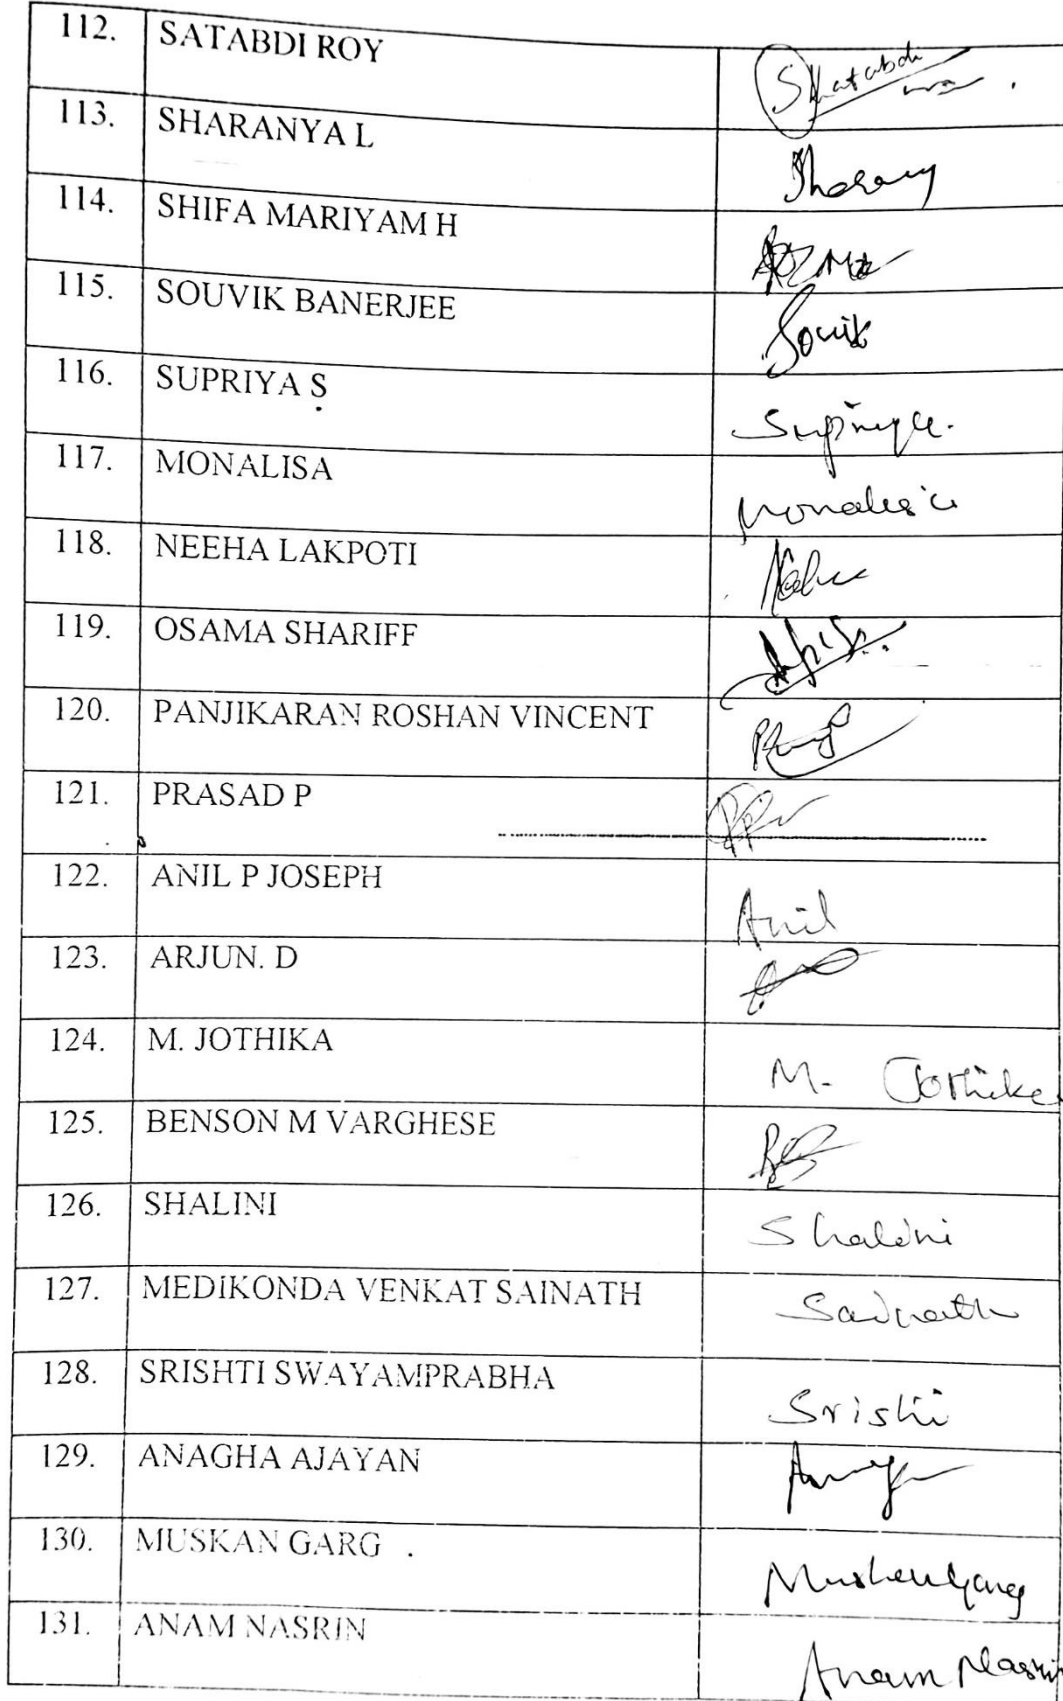 112. SATABDI ROY Shatabdi
113. SHARANYA L
114. SHIFA MARIYAM H
115. SOUVIK BANERJEE Souvik
116. SUPRIYA S Supriya.
117. MONALISA Monalisa
118. NEEHA LAKPOTI Neha
119. OSAMA SHARIFF
120. PANJIKARAN ROSHAN VINCENT
121. PRASAD P
122. ANIL P JOSEPH Anil
123. ARJUN. D
124. M. JOTHIKA M. Jothika
125. BENSON M VARGHESE
126. SHALINI Shalini
127. MEDIKONDA VENKAT SAINATH Sainath
128. SRISHTI SWAYAMPRABHA Srishti
129. ANAGHA AJAYAN
130. MUSKAN GARG Muskan Garg
131. ANAM NASRIN Anam Nasrin